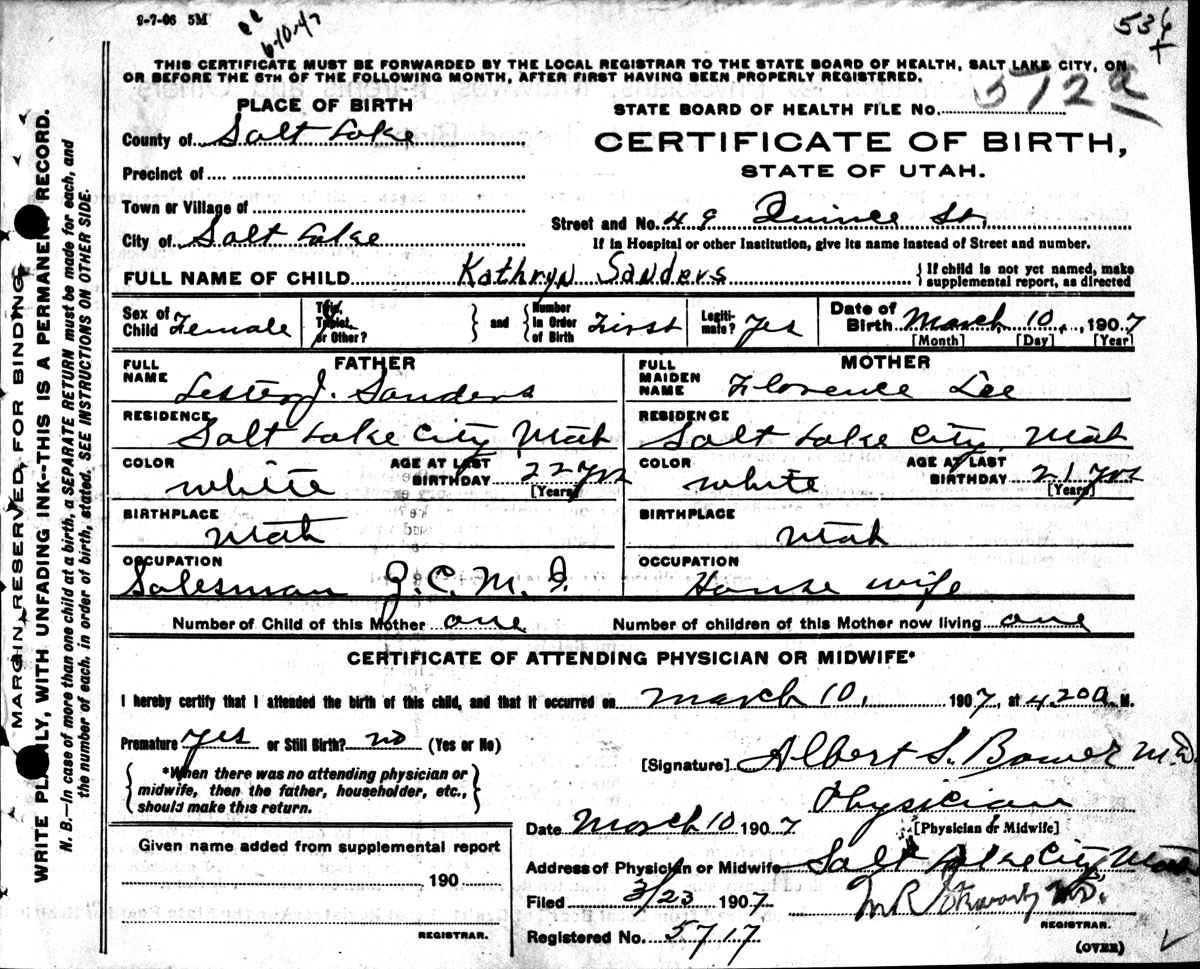 9-7-06 5M
6-10-47
536
THIS CERTIFICATE MUST BE FORWARDED BY THE LOCAL REGISTRAR TO THE STATE BOARD OF HEALTH, SALT LAKE CITY, ON
OR BEFORE THE 5TH OF THE FOLLOWING MONTH, AFTER FIRST HAVING BEEN PROPERLY REGISTERED.
PLACE OF BIRTH
STATE BOARD OF HEALTH FILE No. 572a
County of Salt Lake
CERTIFICATE OF BIRTH,
STATE OF UTAH.
Precinct of
Town or Village of
Street and No. 49 Quince St.
City of Salt Lake
If in Hospital or other Institution, give its name instead of Street and number.
FULL NAME OF CHILD Kathryn Sanders { If child is not yet named, make
supplemental report, as directed
Sex of Child Female
Twin, Triplet, or Other? } and { Number in Order of Birth First
Legiti-mate? Yes
Date of Birth March 10, 1907
[Month] [Day] [Year]
FATHER
MOTHER
FULL NAME Lester J. Sanders
FULL MAIDEN NAME Florence Lee
RESIDENCE Salt Lake City Utah
RESIDENCE Salt Lake City, Utah
COLOR white AGE AT LAST BIRTHDAY 22 yrs [Years]
COLOR white AGE AT LAST BIRTHDAY 21 yrs [Years]
BIRTHPLACE Utah
BIRTHPLACE Utah
OCCUPATION Salesman Z.C.M.I.
OCCUPATION House wife
Number of Child of this Mother one
Number of children of this Mother now living one
CERTIFICATE OF ATTENDING PHYSICIAN OR MIDWIFE*
I hereby certify that I attended the birth of this child, and that it occurred on March 10, 1907, at 4.20 a. M.
Premature yes or Still Birth? no (Yes or No)
[Signature] Albert S. Bower M.D.
{ *When there was no attending physician or
midwife, then the father, householder, etc.,
should make this return. }
Physician
[Physician or Midwife]
Date March 10 1907
Given name added from supplemental report
190
REGISTRAR.
Address of Physician or Midwife Salt Lake City Utah
Filed 3/23 1907
M.D.
REGISTRAR.
Registered No. 5717
(OVER)
MARGIN RESERVED FOR BINDING
WRITE PLAINLY, WITH UNFADING INK--THIS IS A PERMANENT RECORD.
N. B.—In case of more than one child at a birth, a SEPARATE RETURN must be made for each, and
the number of each, in order of birth, stated. SEE INSTRUCTIONS ON OTHER SIDE.